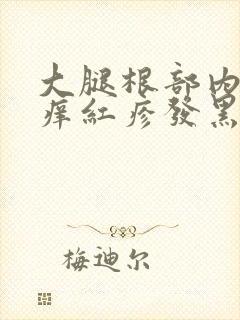 大腿根部内
痒紅疹發黑
梅迪尔